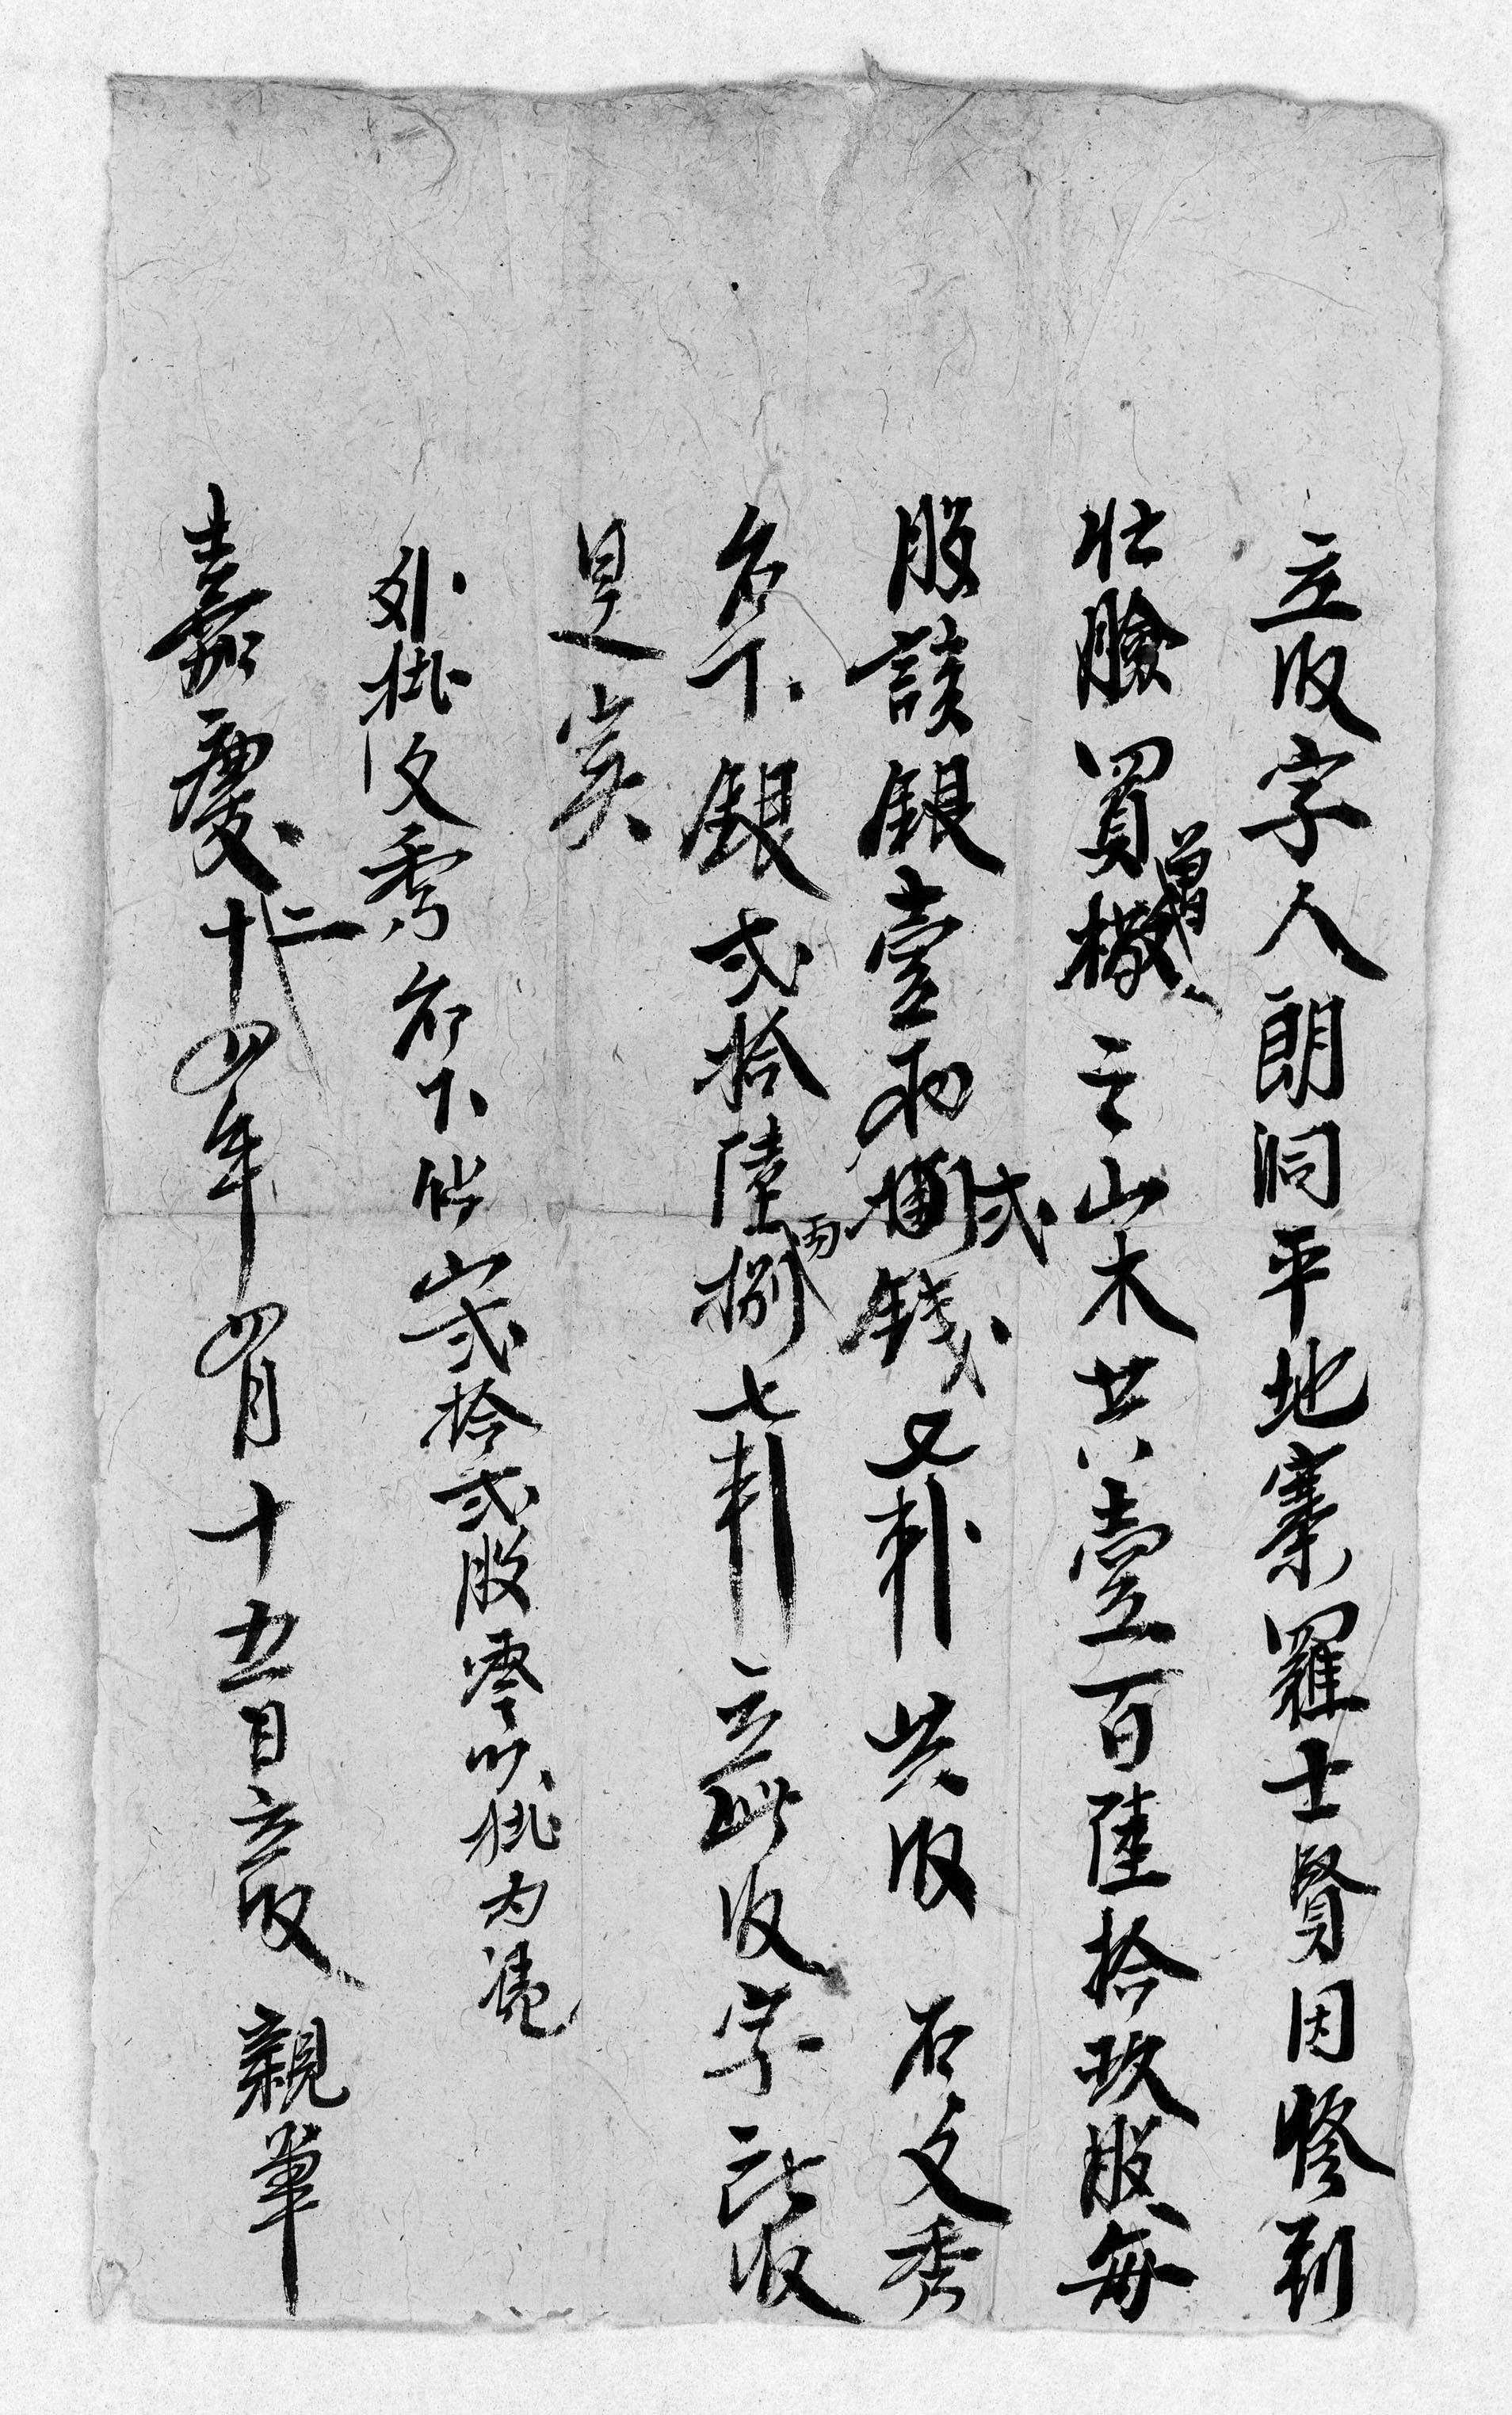 立收字人朗洞平地寨羅士賢因修到
壯臉買橄之山木共壹百陸拾玖股每
股談銀壹兩貳錢又補共收石文秀
名下銀弍拾陸兩捌七利立此收字所收
是实
外批文秀名下佔山弍拾弍股零以批为凴
嘉慶二十四年四月十五日立收親筆